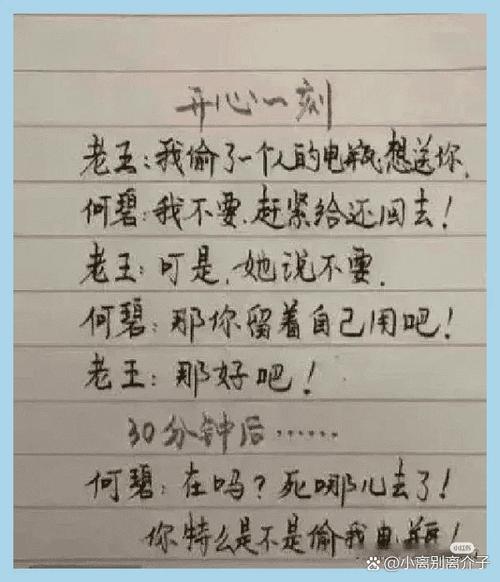 开心一刻
老王:我偷了一个人的电瓶想送你.
何碧:我不要.赶紧给还回去!
老王:可是.她说不要.
何碧:那你留着自己用吧!
老王:那好吧!
30分钟后……
何碧:在吗?死哪儿去了!
你特么是不是偷我电瓶!
小红书
@小离别离介子